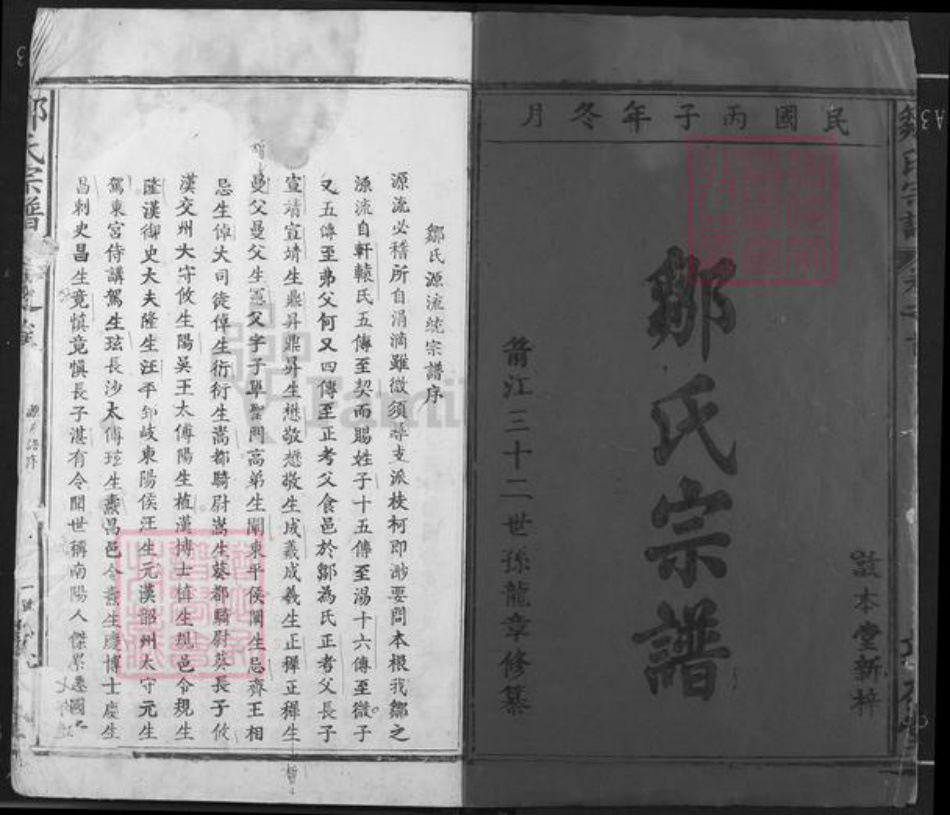 民國丙子年冬月
敦本堂新梓
鄒氏宗譜
箭江三十二世孫龍章修纂
鄒氏源流統宗譜序
源流必稽所自涓滴雖微須尋支派枝柯即渺要問本根我鄒之
源流自軒轅氏五傳至契而賜姓子十五傳至湯十六傳至微子
又五傳至弗父何又四傳至正考父食邑於鄒為氏正考父長子
宣靖宣靖生鼎昇鼎昇生懋敬懋敬生成義成義生正穉正穉生
曼父曼父生憲父字子單聖門高弟生闡東平侯闡生忌齊王相
忌生倬大司徒倬生衍衍生嵩都騎尉嵩生葵都騎尉葵長子攸
漢交州大守攸生陽吳王太傅陽生植漢博士植生規邑令規生
隆漢御史大夫隆生汪平卯岐東陽侯汪生元漢部州太守元生
駕東宮侍講駕生玹長沙太傅玹生燾昌邑令燾生慶博士慶生
昌刺史昌生竟慎竟慎長子湛有令聞世稱南陽人傑累
鄒氏宗譜